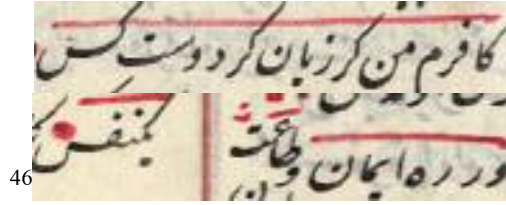 کافرم من کر زیان کردوست کس
در ره ایمان و طاعت یکنفس
46